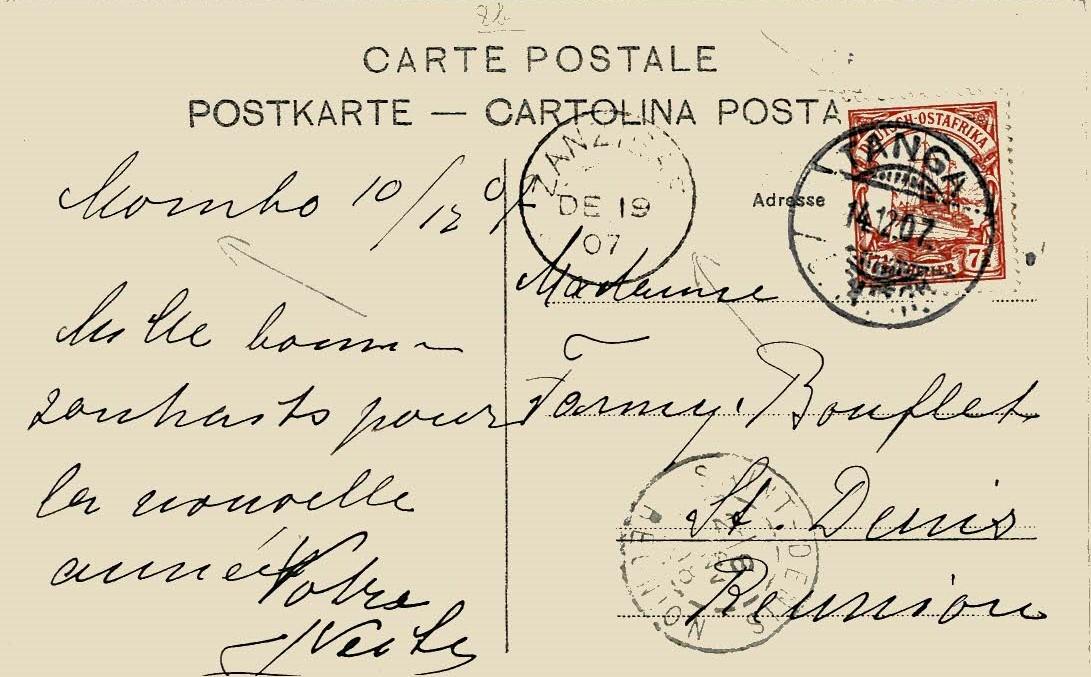 CARTE POSTALE
POSTKARTE — CARTOLINA POSTA
Mombo 10/12 07
Mille bons
souhaits pour
la nouvelle
année
Votre
ZANZIBAR
DE 19
07
Adresse
DEUTSCH-OSTAFRIKA
7½ HELLER 7½
TANGA
14.12.07.
Madame
Fanny Bouflet
St. Denis
Réunion
SAINT-DENIS
RÉUNION